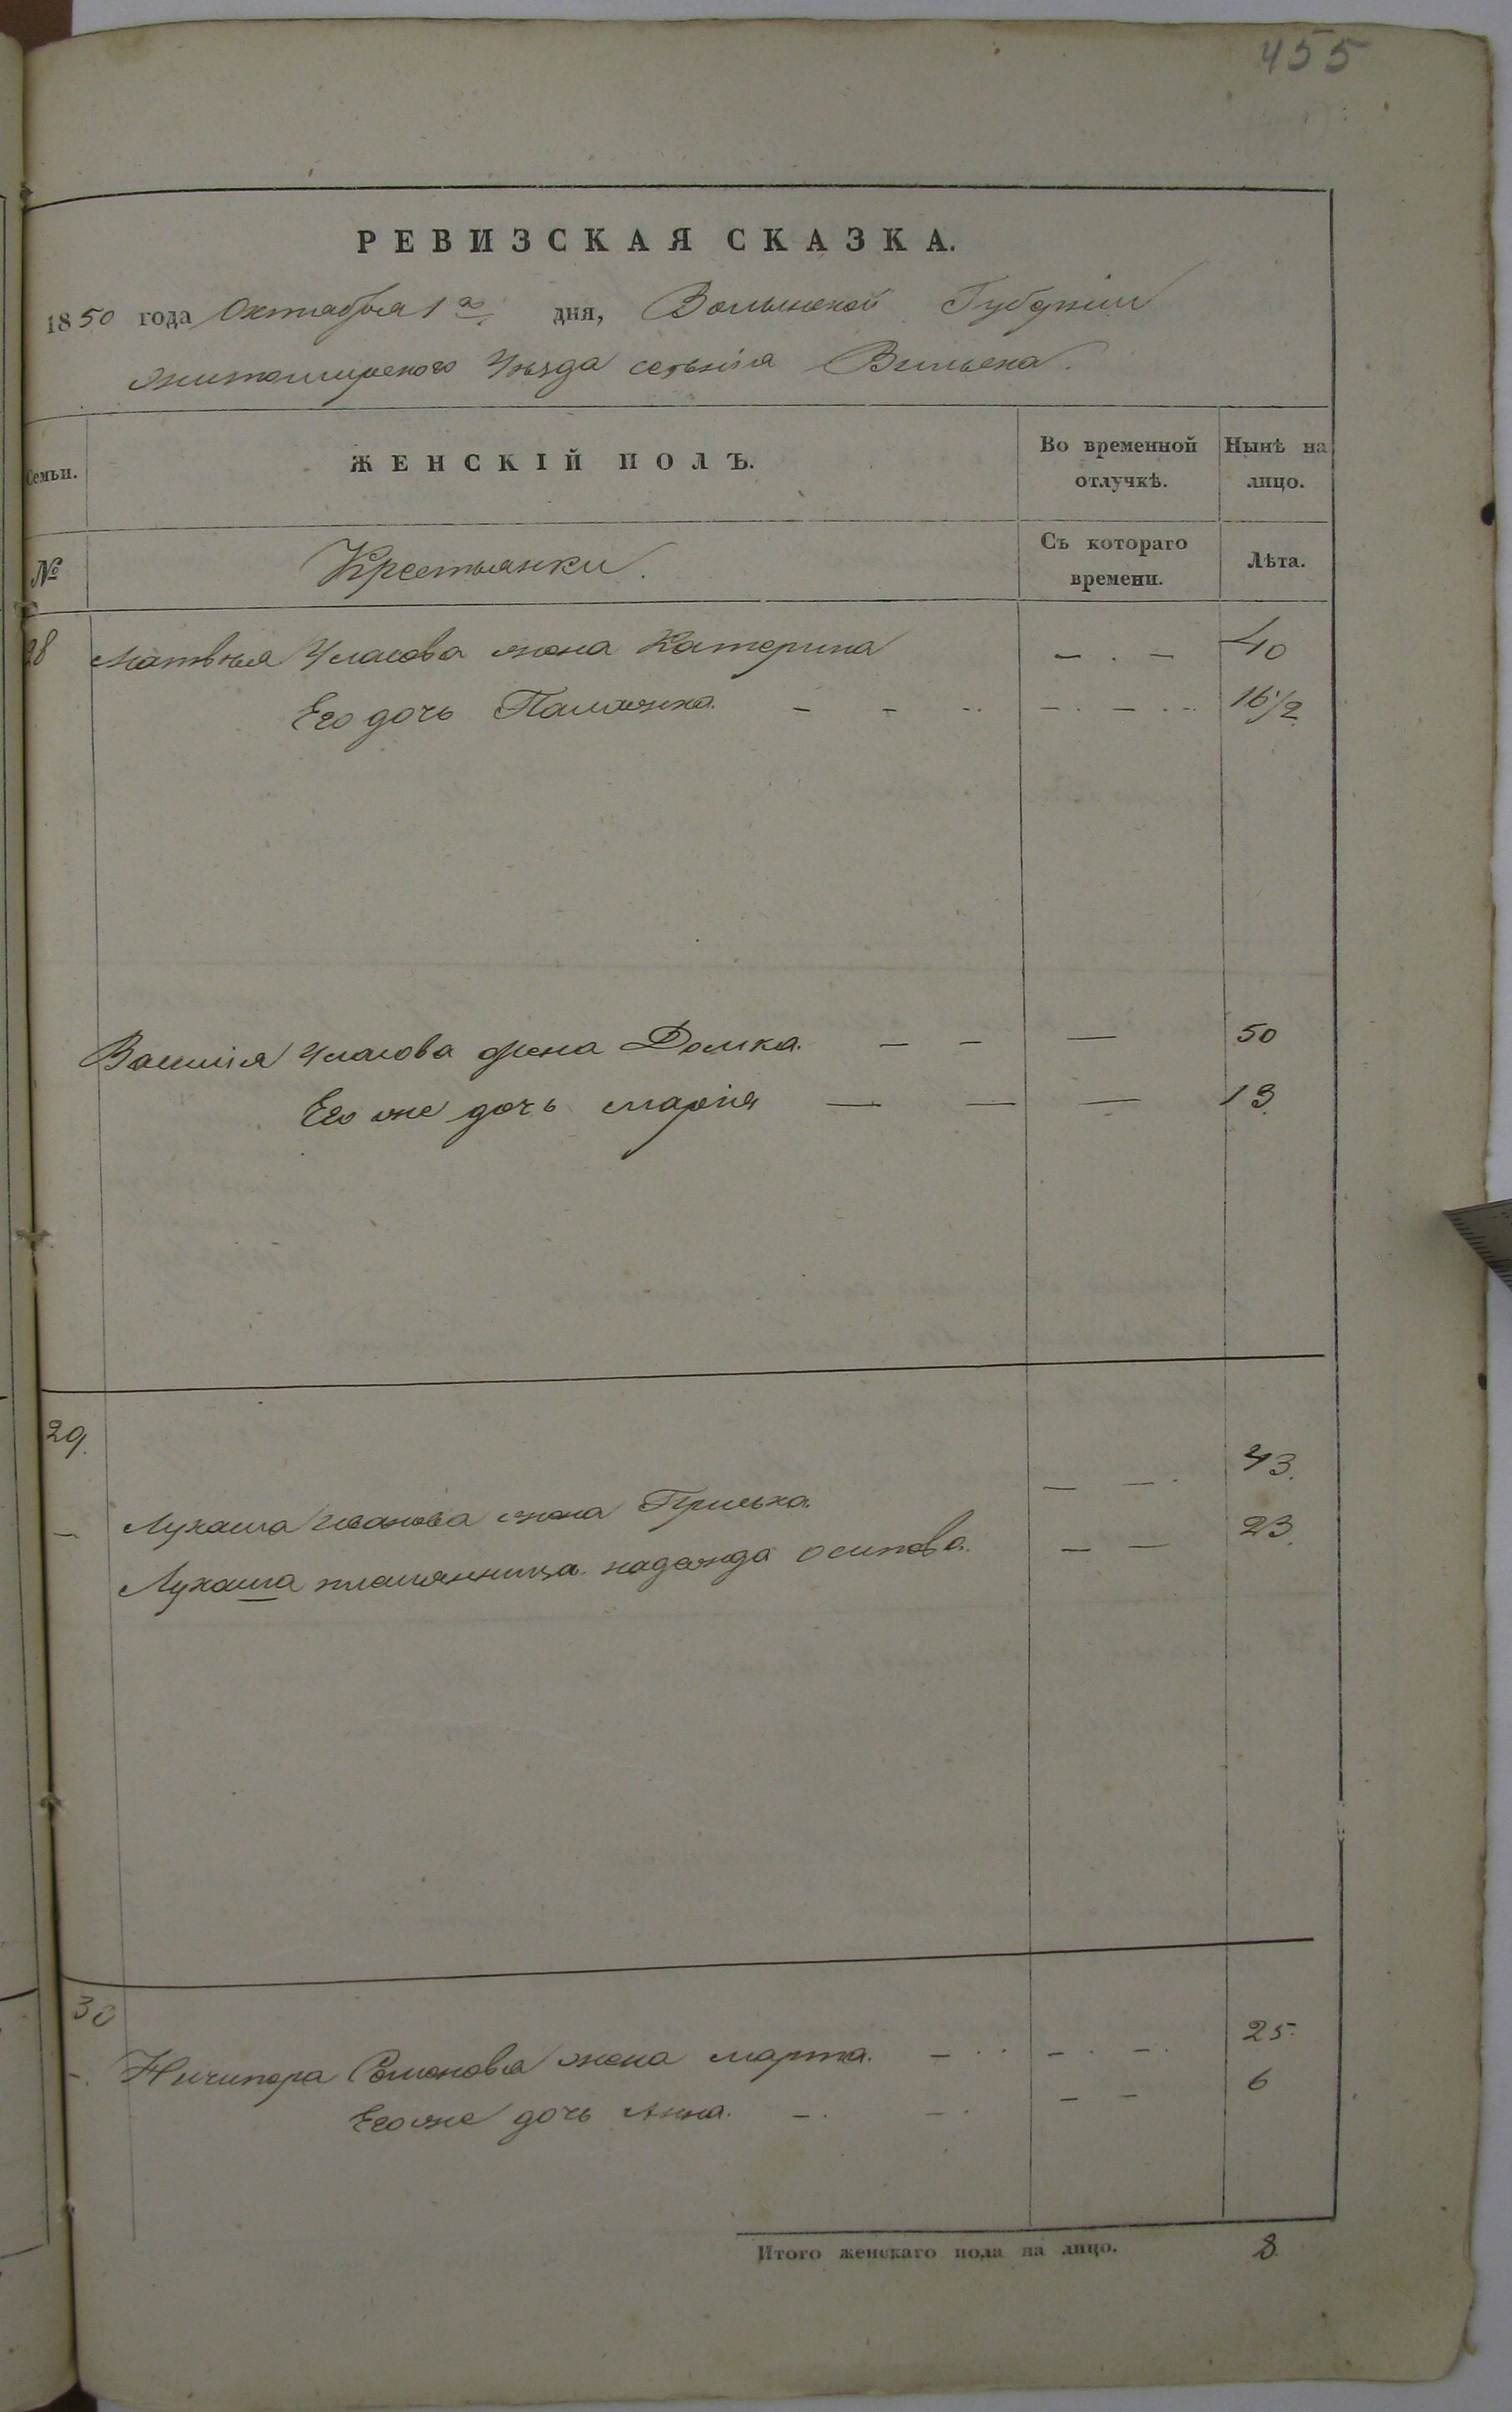 455
РЕВИЗСКАЯ СКАЗКА.
1850 года Октября 1го дня, Волынской Губерніи
Житомирского Уѣзда селенія Вильска.
Семьи. ЖЕНСКІЙ ПОЛЪ. Во временной отлучкѣ. Нынѣ на лицо.
№ Крестьянки. Съ котораго времени. Лѣта.
28 Матвѣя Уласова жена Катерина — . — 40
Его дочь Палажка. — — — — 16 1/2
Василія Уласова жена Домка. — — — 50
Его же дочь марія — — — 13.
29.
— Лукаша Иванова жена Приська. — — 43.
Лукаша племянница надежда осипова. — — 23.
30
—. Ничипора Романова жена марта. — — — 25.
Его же дочь Анна. — — — — 6
Итого женскаго пола на лицо. 8.